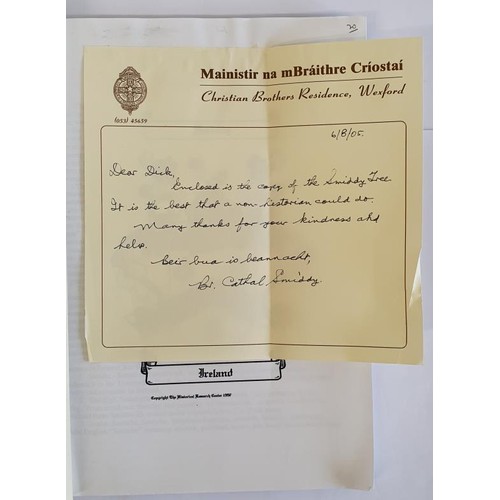 70
Mainistir na mBráithre Críostaí
Christian Brothers Residence, Wexford
(053) 45659
6/8/05.
Dear Dick,
Enclosed is the copy of the Smiddy Tree
It is the best that a non-historian could do.
Many thanks for your kindness and
help.
Beir bua is beannacht,
Br. Cathal Smiddy
Ireland
Copyright The Historical Research Center 1996